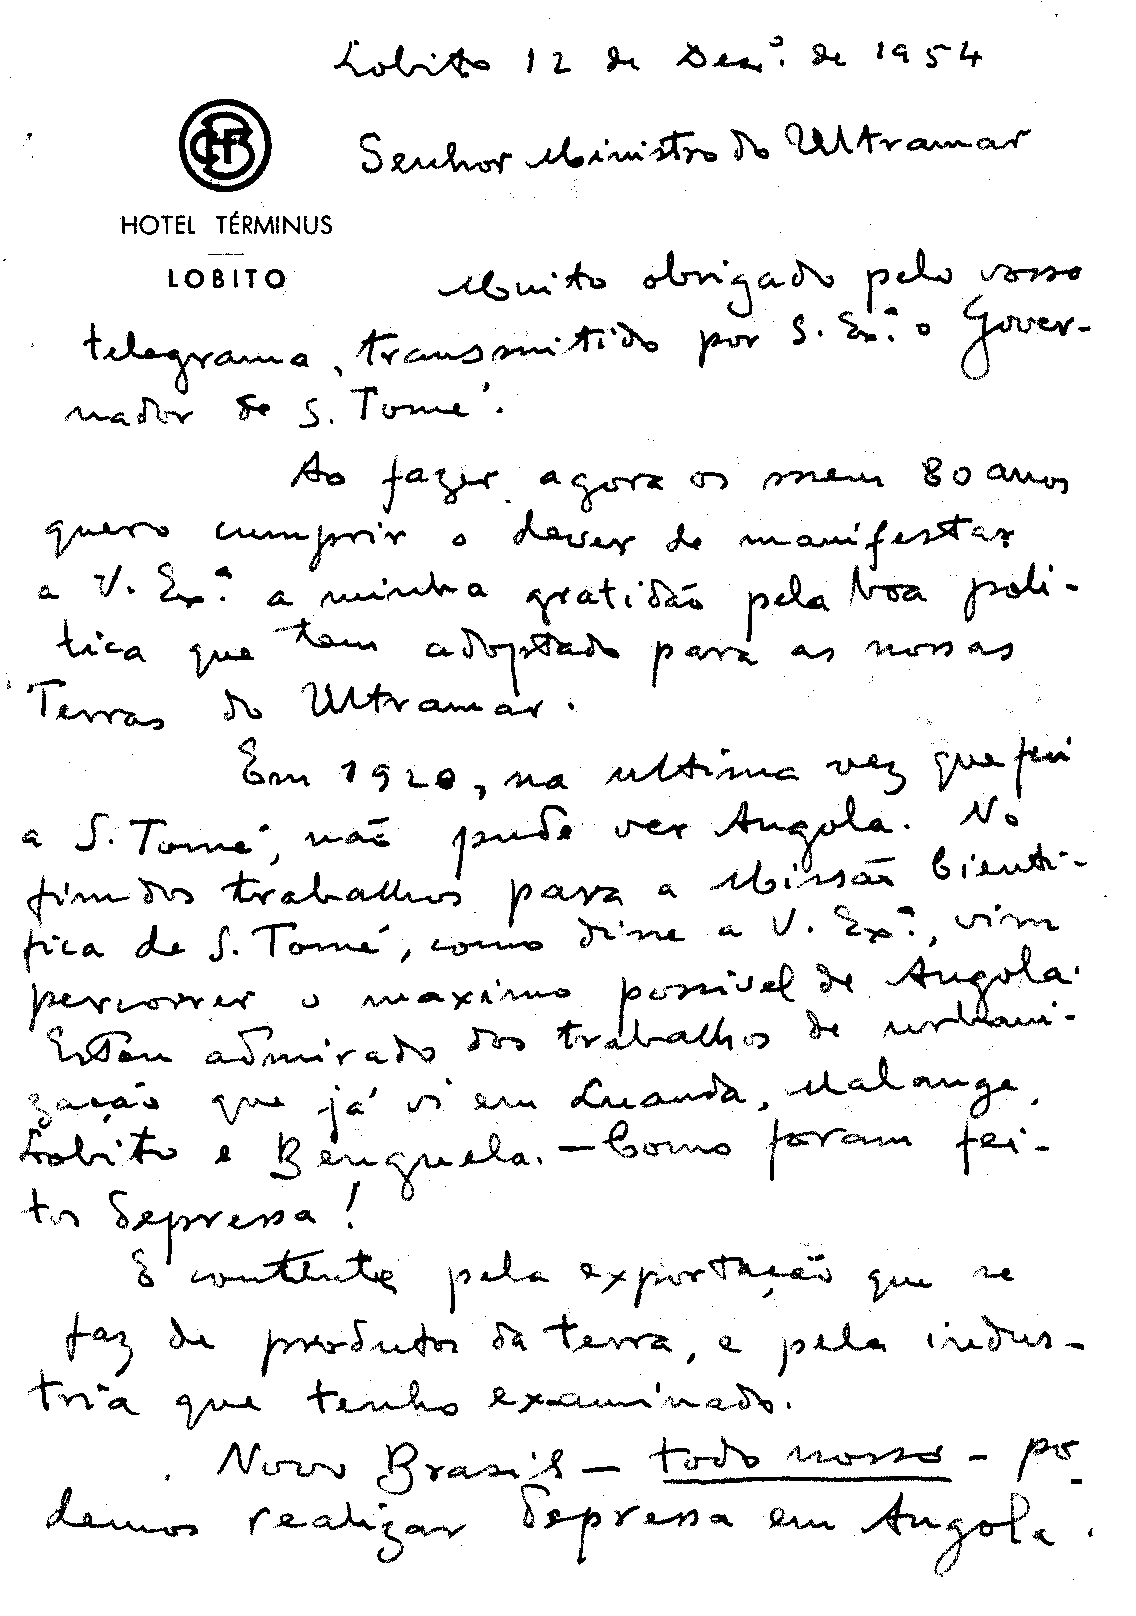 Lobito 12 de Dezº. de 1954
CFB
Senhor Ministro do Ultramar
HOTEL TÉRMINUS
LOBITO
Muito obrigado pelo vosso
telegrama, transmitido por S. Exª. o Gover-
nador de S. Tomé.
Ao fazer agora os meus 80 anos
quero cumprir o dever de manifestar
a V. Exª. a minha gratidão pela boa poli-
tica que tem adoptado para as nossas
Terras do Ultramar.
Em 1920, na ultima vez que fui
a S. Tomé, não pude ver Angola. No
fim dos trabalhos para a Missão Cienti-
fica de S. Tomé, como disse a V. Exª., vim
percorrer o maximo possivel de Angola.
Estou admirado dos trabalhos de urbani-
zação que já vi em Luanda, Malange,
Lobito e Benguela. — Como foram fei-
tos depressa!
E contente pela exportação que se
faz de produtos da terra, e pela indus-
tria que tenho examinado.
Novo Brasil — todo nosso — po-
demos realizar depressa em Angola.